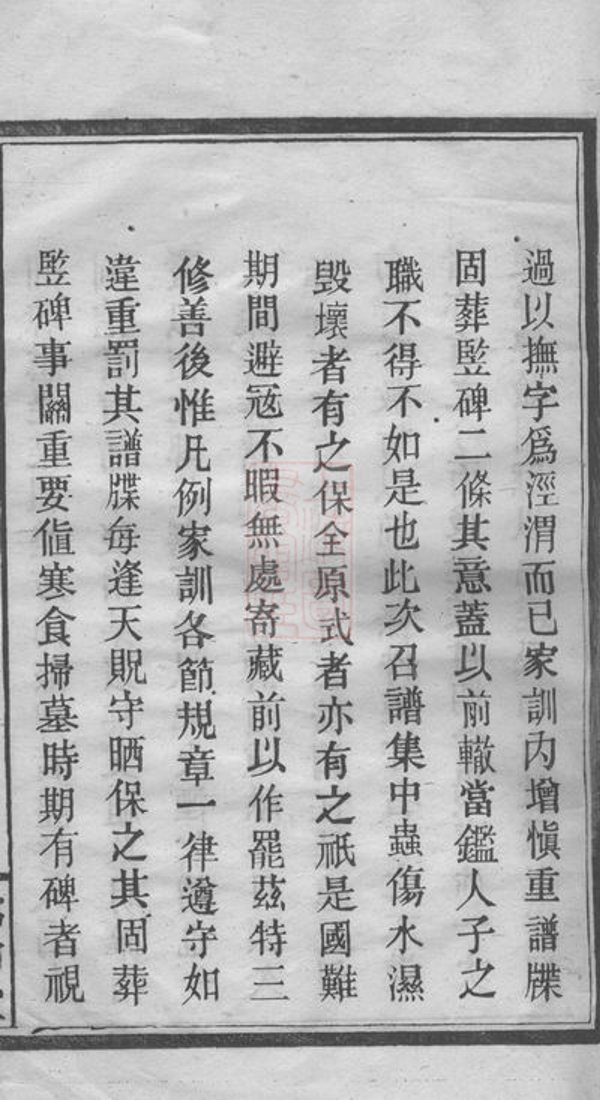 過以撫字爲涇渭而已家訓內增愼重譜牒
固葬竪碑二條其意蓋以前轍當鑑人子之
職不得不如是也此次召譜集中蟲傷水濕
毀壞者有之保全原式者亦有之祇是國難
期間避寇不暇無處寄藏前以作罷茲特三
修善後惟凡例家訓各節規章一律遵守如
違重罰其譜牒每逢天貺守晒保之其固葬
竪碑事關重要值寒食掃墓時期有碑者視